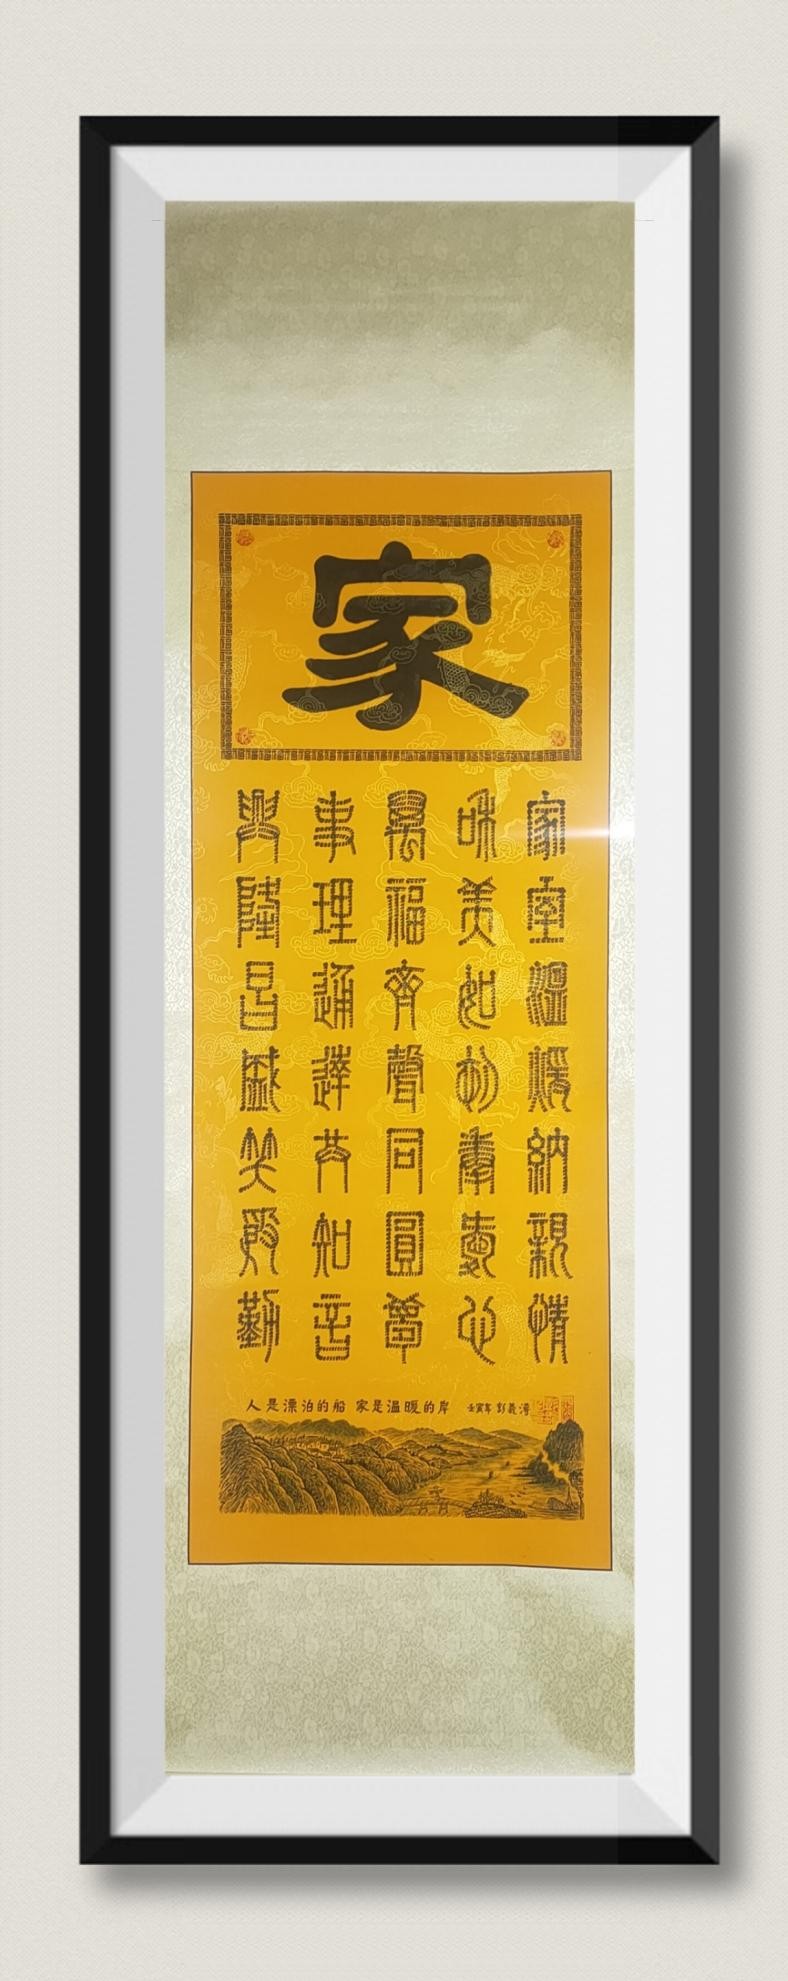 家
家室溫暖納親情
和美如初奉愛心
萬福齊聲同圓夢
事理通達共知音
興隆昌盛笑殷勤
人是漂泊的船 家是溫暖的岸 壬寅年 彭義